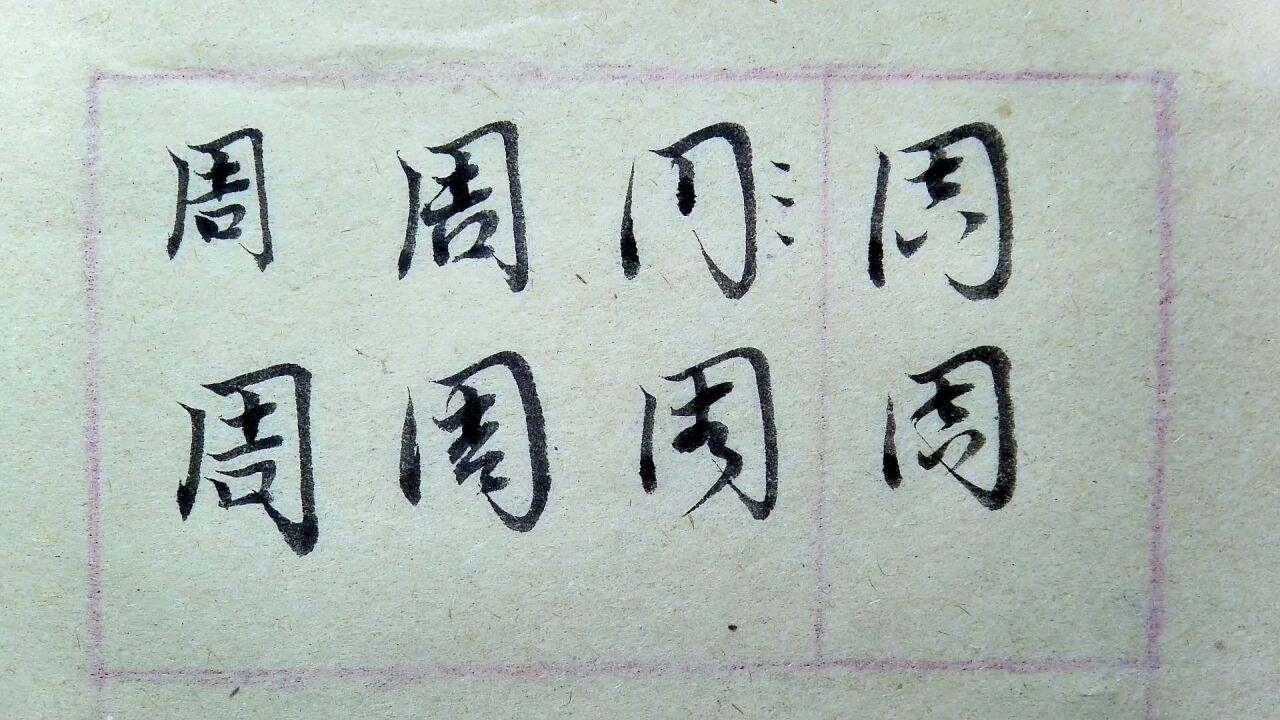 周 周 周
周 周 周 周